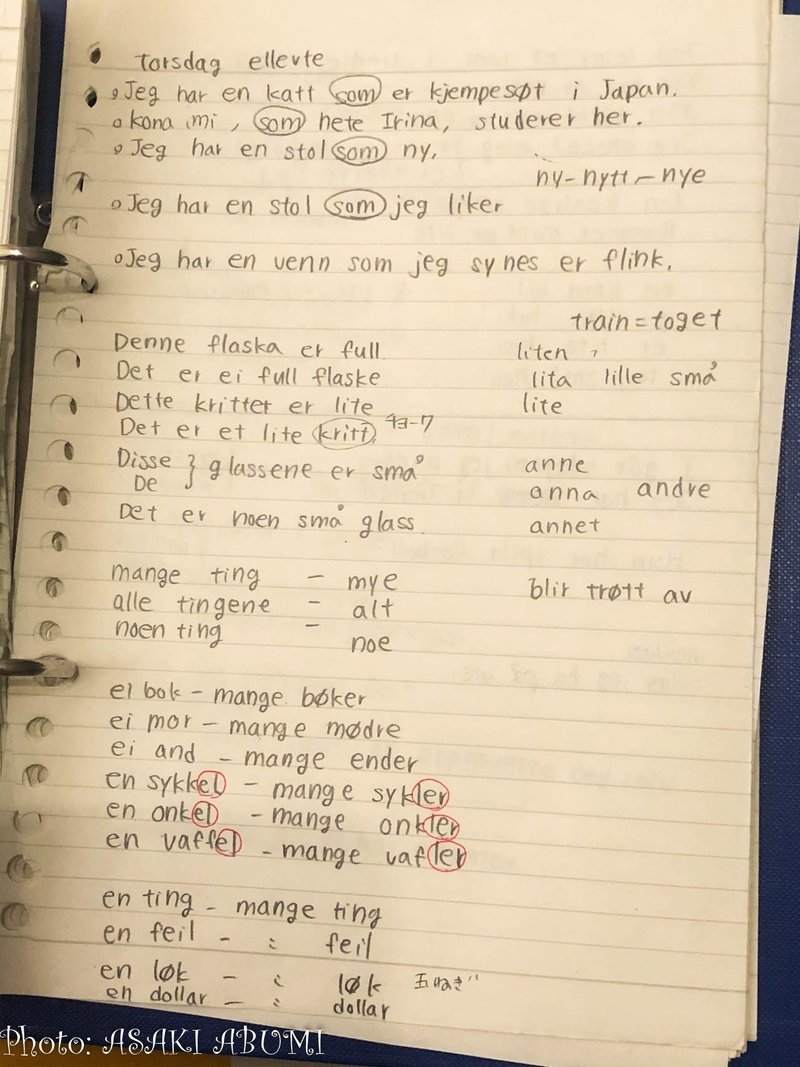 Torsdag ellevte
Jeg har en katt som er kjempesøt i Japan.
Kona mi, som hete Irina, studerer her.
Jeg har en stol som ny.
ny-nytt-nye
Jeg har en stol som jeg liker
Jeg har en venn som jeg synes er flink.
train=toget
Denne flaska er full
liten,
Det er ei full flaske
lita lille små
Dette krittet er lite
lite
Det er et lite kritt チョーク
Disse
De } glassene er små
anne
anna andre
Det er noen små glass.
annet
mange ting - mye
blir trøtt av
alle tingene - alt
noen ting - noe
ei bok - mange bøker
ei mor - mange mødre
ei and - mange ender
en sykkel - mange sykler
en onkel - mange onkler
en vaffel - mange vafler
en ting - mange ting
en feil - 〃 feil
en løk - 〃 løk 玉ねぎ
en dollar - 〃 dollar
Photo: ASAKI ABUMI